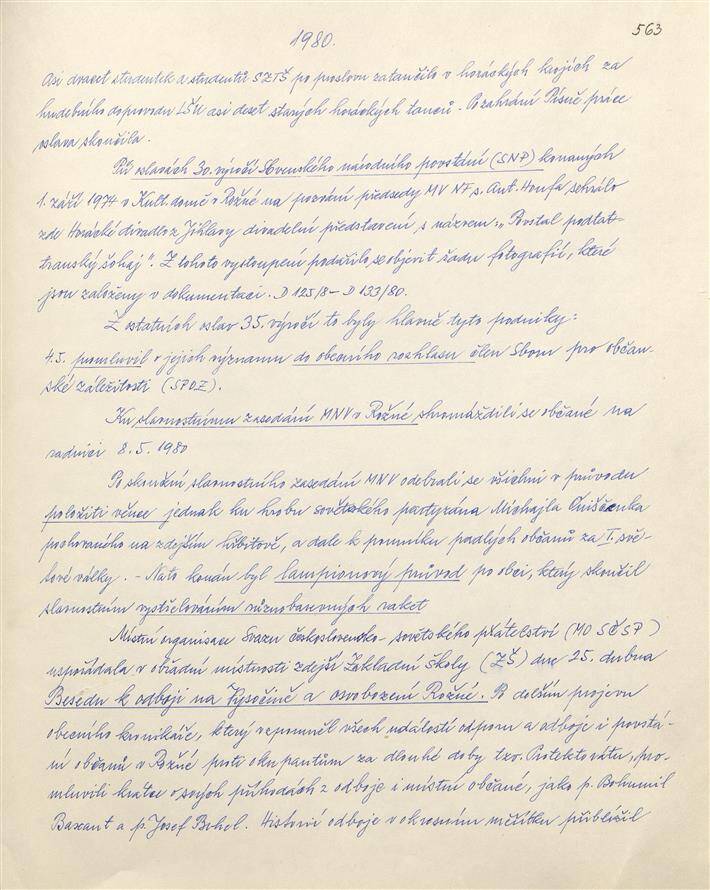 1980.
563
Asi dvacet studentek a studentů SZTŠ po proslovu zatančilo v horáckých krojích za
hudebního doprovodu LŠU asi deset starých horáckých tanců. Po zahrání Písně práce
oslava skončila.
Při oslavách 30. výročí Slovenského národního povstání (SNP) konaných
1. září 1974 v Kult. domě v Rožné na pozvání předsedy MV NF s. Ant. Honfa sehrálo
zde Horácké divadlo z Jihlavy divadelní představení s názvem: "Povstal podtat-
transký šohaj". Z tohoto vystoupení podařilo se objevit řadu fotografií, které
jsou založeny v dokumentaci. D 125/8 - D 133/80.
Z ostatních oslav 35. výročí to byly hlavně tyto podniky:
4.5. promluvil o jejich významu do obecního rozhlasu člen Sboru pro občan-
ské záležitosti (SPOZ).
Ku slavnostnímu zasedání MNV v Rožné shromáždili se občané na
radnici 8.5. 1980
Po skončení slavnostního zasedání MNV odebrali se všichni v průvodu
položiti věnce jednak ku hrobu sovětského partyzána Michajla Oniščenka
pochovaného na zdejším hřbitově, a dale k pomníku padlých občanů za I. svě-
tové války. - Nato konán byl lampionový průvod po obci, který skončil
slavnostním vystřelováním různobarevných raket
Místní organisace Svazu československo-sovětského přátelství (MO SČSP)
uspořádala v obřadní místnosti zdejší Základní školy (ZŠ) dne 25. dubna
Besedu k odboji na Vysočině a osvobození Rožné. Po delším projevu
obecního kronikáře, který vzpomněl všech událostí odporu a odboje i povstá-
ní občanů v Rožné proti okupantům za dlouhé doby tzv. Protektorátu, pro-
mluvili krátce o svých příhodách z odboje i místní občané, jako p. Bohumil
Baxant a p. Josef Bohel. Historii odboje v okresním měřítku přiblížil